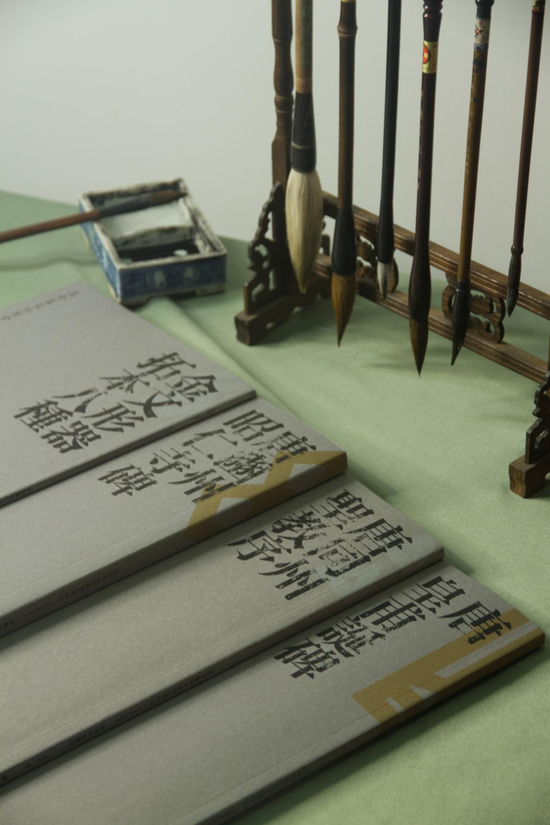 金文形器
拓本八種
唐豳州
昭仁寺碑
唐同州
聖教序
唐
皇甫誕碑